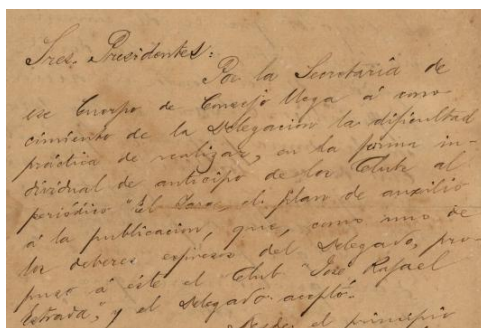 Sres. Presidentes:
Por la Secretaría de
ese Cuerpo de Consejo llega á cono-
cimiento de la Delegación la dificultad
práctica de realizar, en la forma in-
dividual de anticipo de los Clubs al
periódico "El", el plan de auxilio
á la publicación, que, como uno de
los deberes expresos del Delegado, pro-
puso á éste el Club "José Rafael
Estrada", y el Delegado aceptó.
Desde el principio